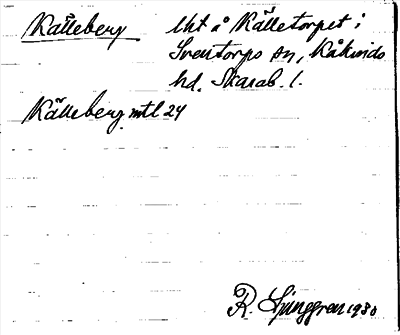 Källeberg
Uht å Källetorpet i
Sventorps sn, Kåkinds
hd. Skarab. l.
Källeberg mtl 24
R. Ljunggren 1930